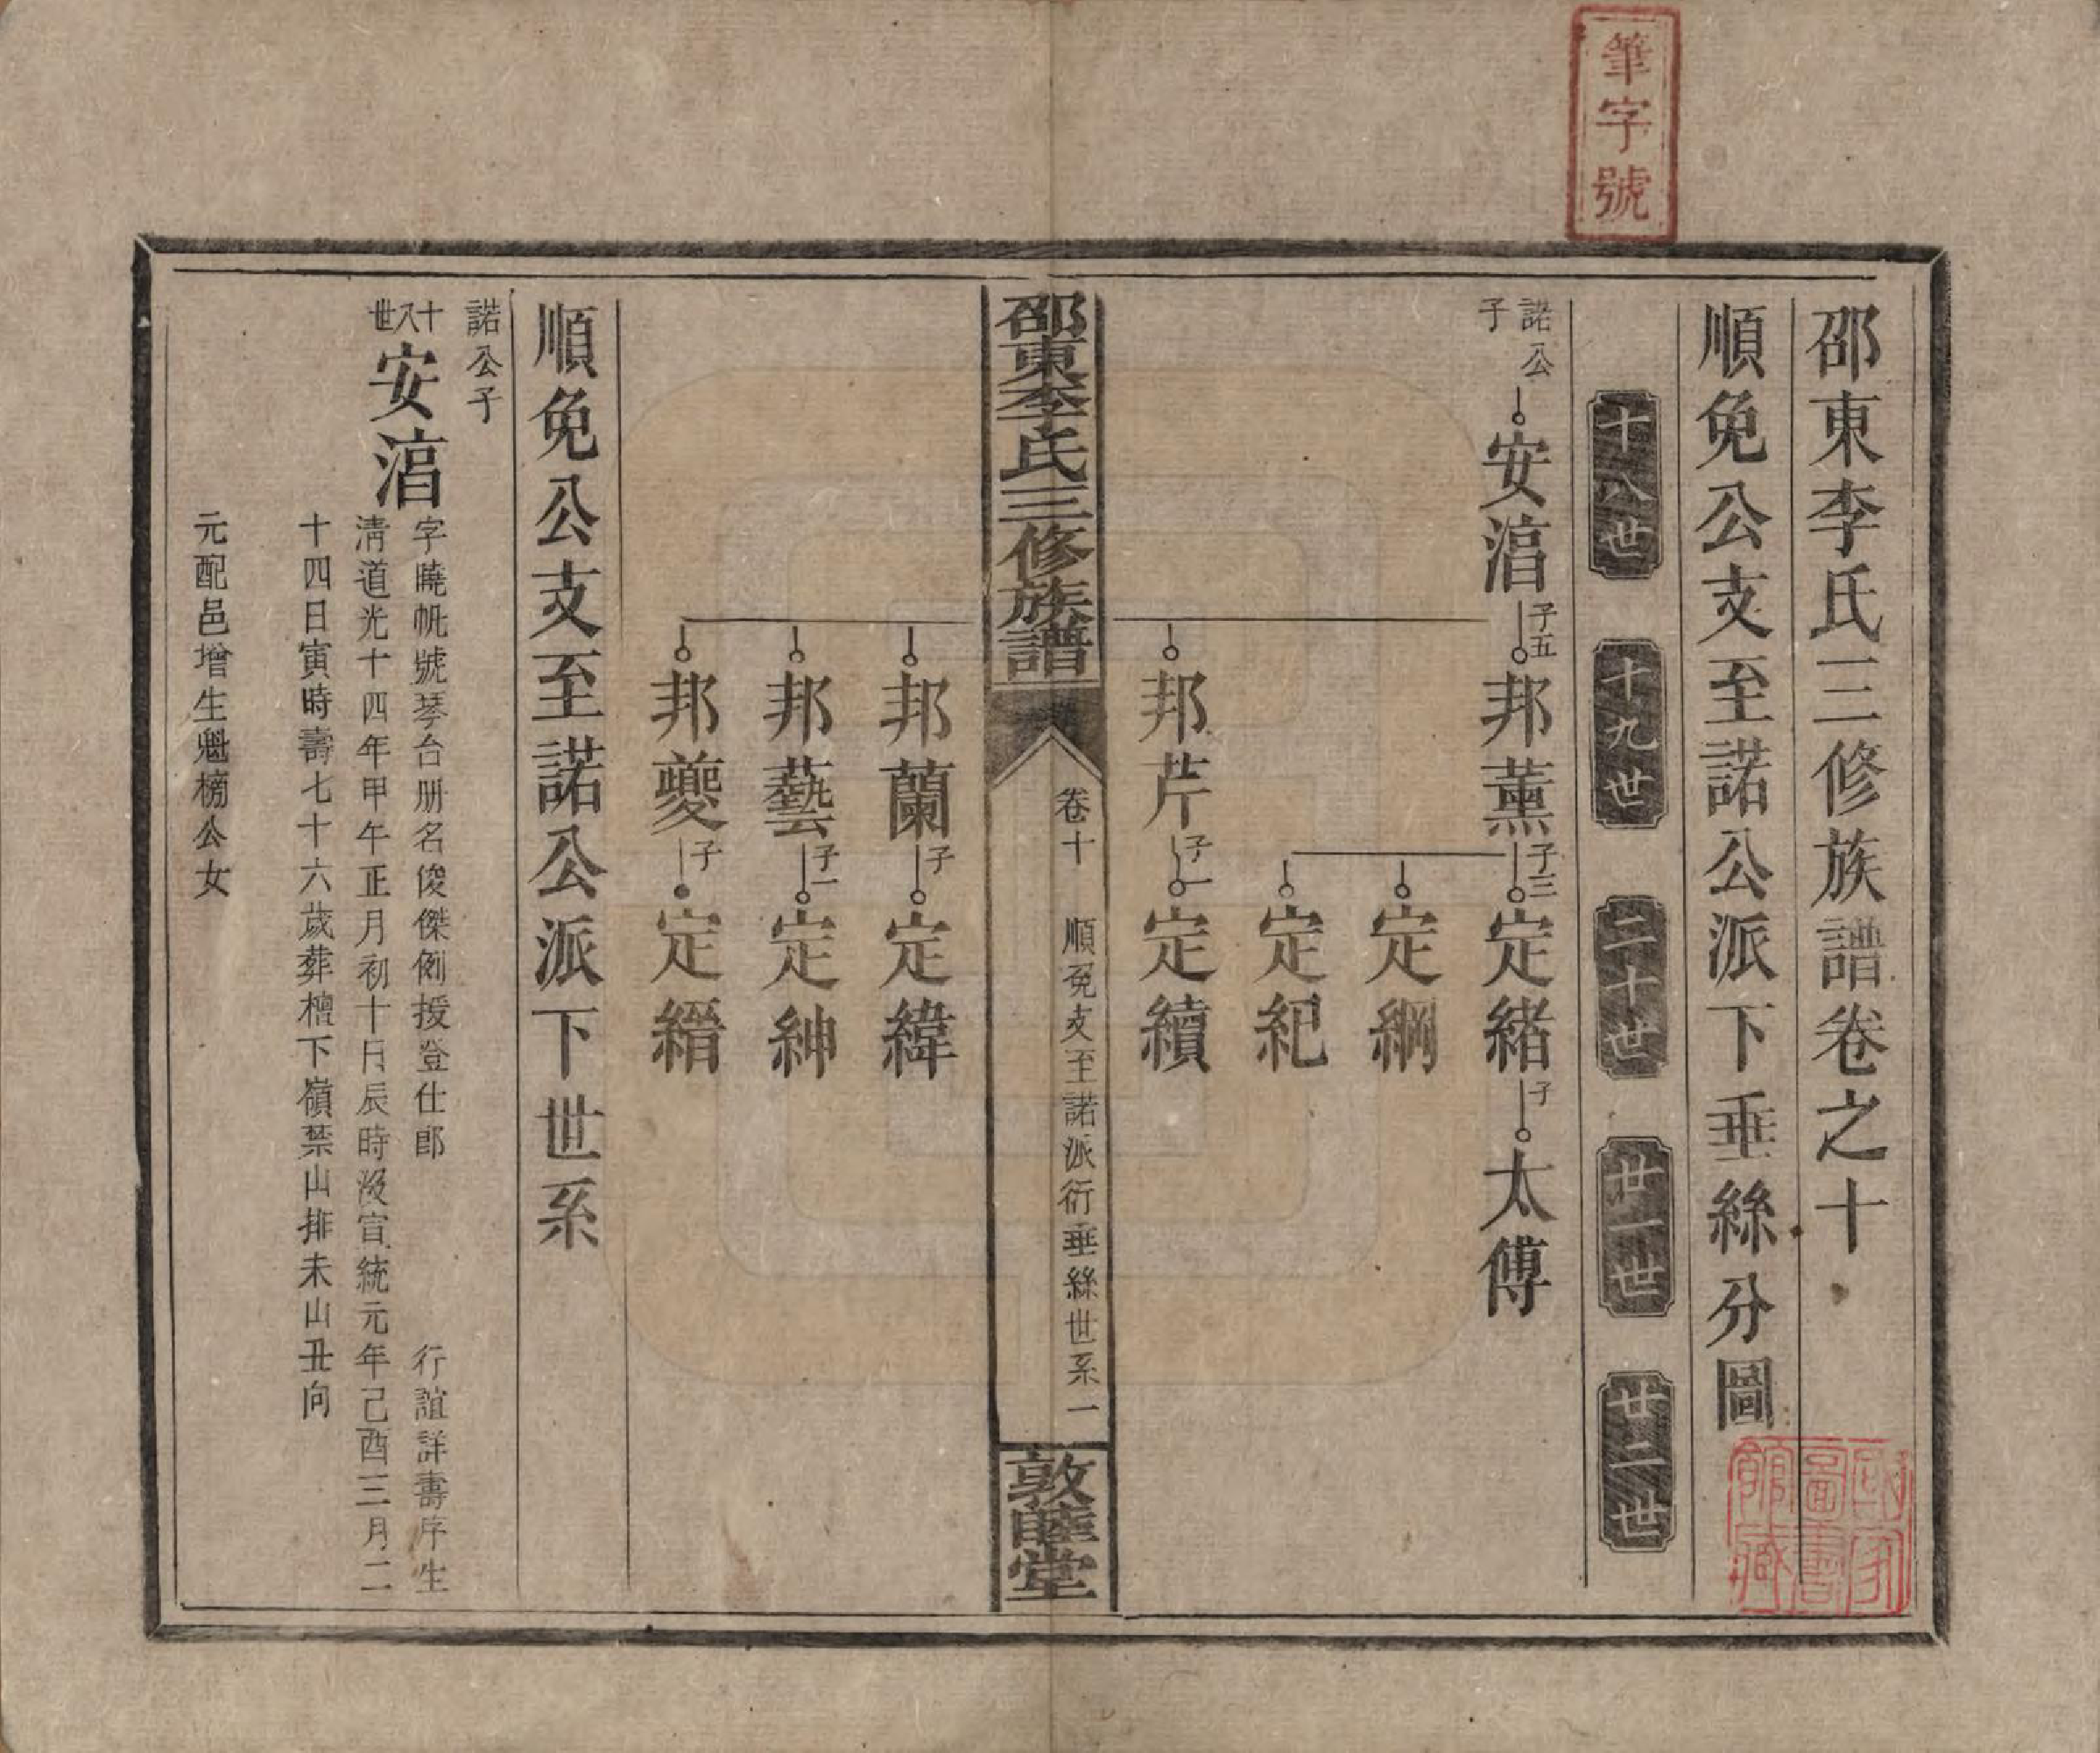 筆字號
邵東李氏三修族譜卷之十
順免公支至諾公派下垂絲分圖
十八世
十九世
二十世
廿一世
廿二世
諾公子
安涫
子五
邦薰
子三
定緒
子
太傅
定綱
定紀
邦芹
子一
定續
邵東李氏三修族譜
卷十
順免支至諾派衍垂絲世系
一
敦睦堂
邦蘭
子
定緯
邦藝
子一
定紳
邦夔
子
定縉
順免公支至諾公派下世系
諾公子
十八世
安涫
字曉帆號琴台册名俊傑例授登仕郎 行誼詳壽序生
清道光十四年甲午正月初十日辰時沒宣統元年己酉三月二
十四日寅時壽七十六歲葬檀下嶺禁山排未山丑向
元配邑增生魁榜公女
國家圖書館藏